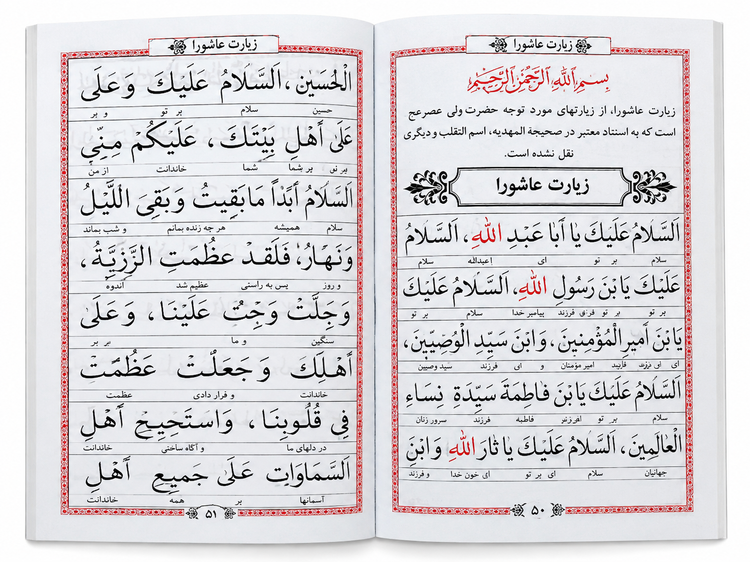 زیارت عاشورا
بِسْمِ اللهِ الرَّحْمٰنِ الرَّحِیْمِ
زیارت عاشورا، از زیارتهای مورد توجه حضرت ولی عصرعج
است که به اسنتاد معتبر در صحیحة المهدیه، اسم التقلب و دیگری
نقل نشده است.
زیارت عاشورا
اَلسَّلَامُ عَلَیْكَ یا اَبا عَبْدِ اللهِ، اَلسَّلَامُ
سلام بر تو ای سلام
عَلَیْكَ یَا بْنَ رَسُولِ اللهِ، اَلسَّلَامُ عَلَیْكَ
بر تو بر تو فرزند پیامبر خدا سلام بر تو
یَا بْنَ اَمِیرِ الْمُؤْمِنِینَ، وَ ابْنَ سَیِّدِ الْوَصِیِّینَ،
ای امیر مؤمنان و ای فرزند سید وصیین
اَلسَّلَامُ عَلَیْكَ یَا بْنَ فَاطِمَةَ سَیِّدَةِ نِسَاءِ
سلام بر تو فاطمه فرزند سرور زنان
الْعَالَمِینَ، اَلسَّلَامُ عَلَیْكَ یا ثارَ اللهِ وَ ابْنِ
جهانیان سلام ای بر تو ای خون خدا و فرزند
۵۰
زیارت عاشورا
الْحُسَیْنِ، اَلسَّلَامُ عَلَیْكَ وَ عَلَی
حسین سلام بر تو و بر
عَلَی اَهْلِ بَیْتِكَ، عَلَیْکُمْ مِنِّي
بر تو بر شما شما خاندانت از من
اَلسَّلَامُ اَبَدًا مَا بَقِیتُ وَ بَقِیَ اللَّیْلُ
سلام همیشه هر چه زنده بمانم و شب بماند
وَ نَهَارُ، فَلَقَد عَظُمَتِ الرَّزِیَّةُ،
و روز پس به راستی عظیم شد اندوه
وَ جِلَّتْ وَجِتُ عَلَیْنَا، وَ عَلَی
سنگین و ما بر بر
اَهْلِكَ وَ جَعَلْتَ عَظُمَتْ
خاندانت و قرار دادی عظمت
فِي قُلُوبِنَا، وَاسْتَحِیحِ اَهْلِ
در دلهای ما و آگاه ساختی خاندانت
اَلسَّمَاوَاتِ عَلَی جَمِیعِ اَهْلِ
آسمانها بر همه خاندانت
۵۱